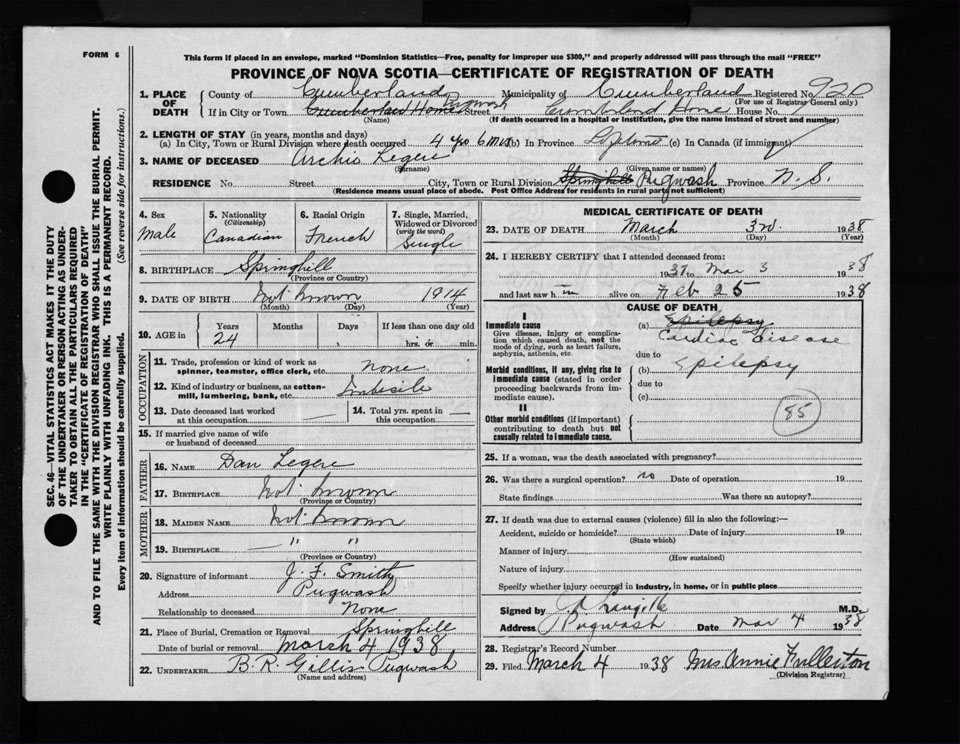 FORM 6
This form if placed in an envelope, marked "Dominion Statistics—Free, penalty for improper use $300," and properly addressed will pass through the mail "FREE"
PROVINCE OF NOVA SCOTIA—CERTIFICATE OF REGISTRATION OF DEATH
1. PLACE OF DEATH County of Cumberland Municipality of Cumberland Registered No. 920
(For use of Registrar General only)
If in City or Town Cumberland Home Pugwash Street Cumberland Home House No.
(Name) (If death occurred in a hospital or institution, give the name instead of street and number)
2. LENGTH OF STAY (in years, months and days)
(a) In City, Town or Rural Division where death occurred 4 yrs 6 mos (b) In Province Lifetime (c) In Canada (if immigrant)
3. NAME OF DECEASED Archie Legere
(Surname) (Given name or names)
RESIDENCE No. Street City, Town or Rural Division Springhill Pugwash Province N. S.
(Residence means usual place of abode. Post Office Address for residents in rural parts not sufficient)
4. Sex Male
5. Nationality (Citizenship) Canadian
6. Racial Origin French
7. Single, Married, Widowed or Divorced (write the word) Single
8. BIRTHPLACE Springhill
(Province or Country)
9. DATE OF BIRTH Not Known 1914
(Month) (Day) (Year)
10. AGE in Years Months Days If less than one day old
24 hrs. or min.
OCCUPATION
11. Trade, profession or kind of work as spinner, teamster, office clerk, etc. None
12. Kind of industry or business, as cotton-mill, lumbering, bank, etc. Imbesile
13. Date deceased last worked at this occupation —
14. Total yrs. spent in this occupation —
15. If married give name of wife or husband of deceased
FATHER
16. NAME Dan Legere
17. BIRTHPLACE Not Known
(Province or Country)
MOTHER
18. MAIDEN NAME Not Known
19. BIRTHPLACE — " "
(Province or Country)
20. Signature of informant J. F. Smith
Address Pugwash
Relationship to deceased None
21. Place of Burial, Cremation or Removal Springhill
Date of burial or removal March 4 1938
22. UNDERTAKER B. R. Gillis Pugwash
(Name and address)
MEDICAL CERTIFICATE OF DEATH
23. DATE OF DEATH March 3rd 1938
(Month) (Day) (Year)
24. I HEREBY CERTIFY that I attended deceased from:
1937 to Mar 3 1938
and last saw h im alive on Feb 25 1938
CAUSE OF DEATH
I
Immediate cause
Give disease, injury or complication which caused death, not the mode of dying, such as heart failure, asphyxia, asthenia, etc.
(a) Epilepsy
Cardiac Disease
due to
Morbid conditions, if any, giving rise to immediate cause (stated in order proceeding backwards from immediate cause).
(b) Epilepsy
due to
(c)
II
Other morbid conditions (if important) contributing to death but not causally related to immediate cause.
85
25. If a woman, was the death associated with pregnancy?
26. Was there a surgical operation? no Date of operation 19
State findings Was there an autopsy?
27. If death was due to external causes (violence) fill in also the following:—
Accident, suicide or homicide? Date of injury 19
(State which)
Manner of injury
(How sustained)
Nature of injury
Specify whether injury occurred in industry, in home, or in public place
Signed by Langille M.D.
Address Pugwash Date Mar 4 1938
28. Registrar's Record Number
29. Filed March 4 1938 Mrs. Annie Fullerton
(Division Registrar)
SEC. 46—VITAL STATISTICS ACT MAKES IT THE DUTY
OF THE UNDERTAKER OR PERSON ACTING AS UNDER-
TAKER TO OBTAIN ALL THE PARTICULARS REQUIRED
IN THE "CERTIFICATE OF REGISTRATION OF DEATH"
AND TO FILE THE SAME WITH THE DIVISION REGISTRAR WHO SHALL ISSUE THE BURIAL PERMIT.
WRITE PLAINLY WITH UNFADING INK. THIS IS A PERMANENT RECORD.
Every item of information should be carefully supplied. (See reverse side for instructions.)